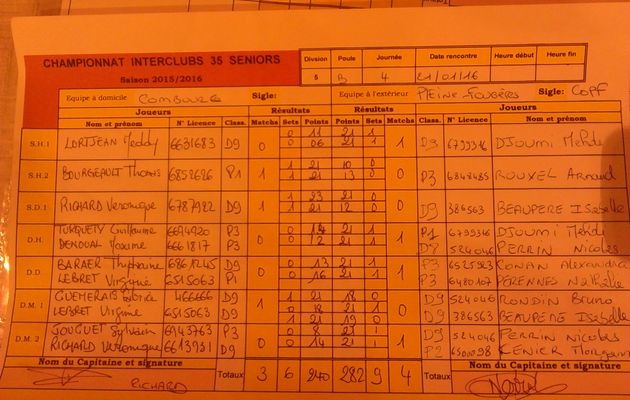 CHAMPIONNAT INTERCLUBS 35 SENIORS
Saison 2015/2016
Division Poule Journée Date rencontre Heure début Heure fin
5 B 4 21/01/16
Equipe à domicile COMBOURG Sigle: Equipe à l'extérieur PLEINE FOUGERES Sigle: COPF
Joueurs Résultats Résultats Joueurs
Nom et prénom N° Licence Class. Matchs Sets Points Points Sets Matchs Class. N° Licence Nom et prénom
S.H.1 LORTJEAN Meddy 6631683 D9 0 0 11 21 1 1 D9 6799316 DJOUMI Mehdi
0 06 21 1
S.H.2 BOURGEAULT Thomas 6852626 P1 1 1 21 10 0 0 P3 6848485 ROUXEL Arnaud
1 21 13 0
S.D.1 RICHARD Veronique 6787922 D9 1 1 23 21 0 0 D9 386563 BEAUPERE Isabelle
1 21 12 0
D.H. TURQUETY Guillaume 6694920 P3 0 0 14 21 1 1 P1 6799316 DJOUMI Mehdi
DENOUAL Maxime 6661817 P3 0 12 21 1 D7 524046 PERRIN Nicolas
D.D. BARAER Thyphaine 6861245 D9 0 0 13 21 1 1 P3 6525923 CONAN Alexandra
LEBRET Virginie 6515063 P1 0 16 21 1 P3 6480107 PERENNES Nathalie
D.M. 1 GUEMERAIS 466666 D9 1 1 21 18 0 0 D9 524046 RONDIN Bruno
LEBRET Virginie 6515063 D9 0 18 21 1 D9 386563 BEAUPERE Isabelle
1 21 19 0
D.M. 2 JOUGUET Sylvain 6943763 P3 0 0 8 21 1 1 D9 524046 PERRIN Nicolas
RICHARD Veronique 6613951 D9 0 14 21 1 P2 6500098 CENIER Morgann
Nom du Capitaine et signature Totaux 3 6 240 282 9 4 Totaux Nom du Capitaine et signature
RICHARD